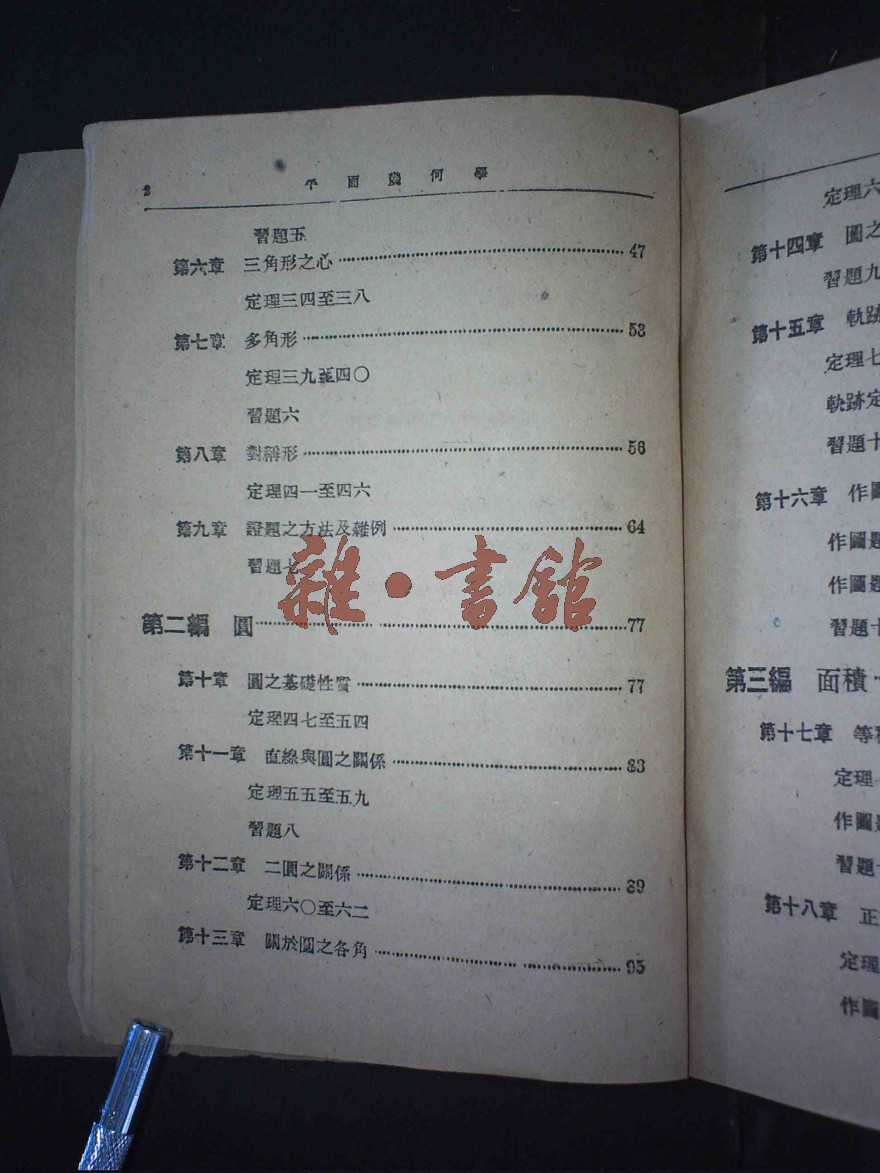 2 平面幾何學
習題五
第六章 三角形之心 47
定理三四至三八
第七章 多角形 53
定理三九至四〇
習題六
第八章 對稱形 56
定理四一至四六
第九章 證題之方法及雜例 64
習題七
雜·書館
第二編 圓 77
第十章 圓之基礎性質 77
定理四七至五四
第十一章 直線與圓之關係 83
定理五五至五九
習題八
第十二章 二圓之關係 89
定理六〇至六二
第十三章 關於圓之各角 95
定理六
第十四章 圓之
習題九
第十五章 軌跡
定理七
軌跡定
習題十
第十六章 作圖
作圖題
作圖題
習題十
第三編 面積
第十七章 等積
定理
作圖題
習題十
第十八章 正
定理
作圖